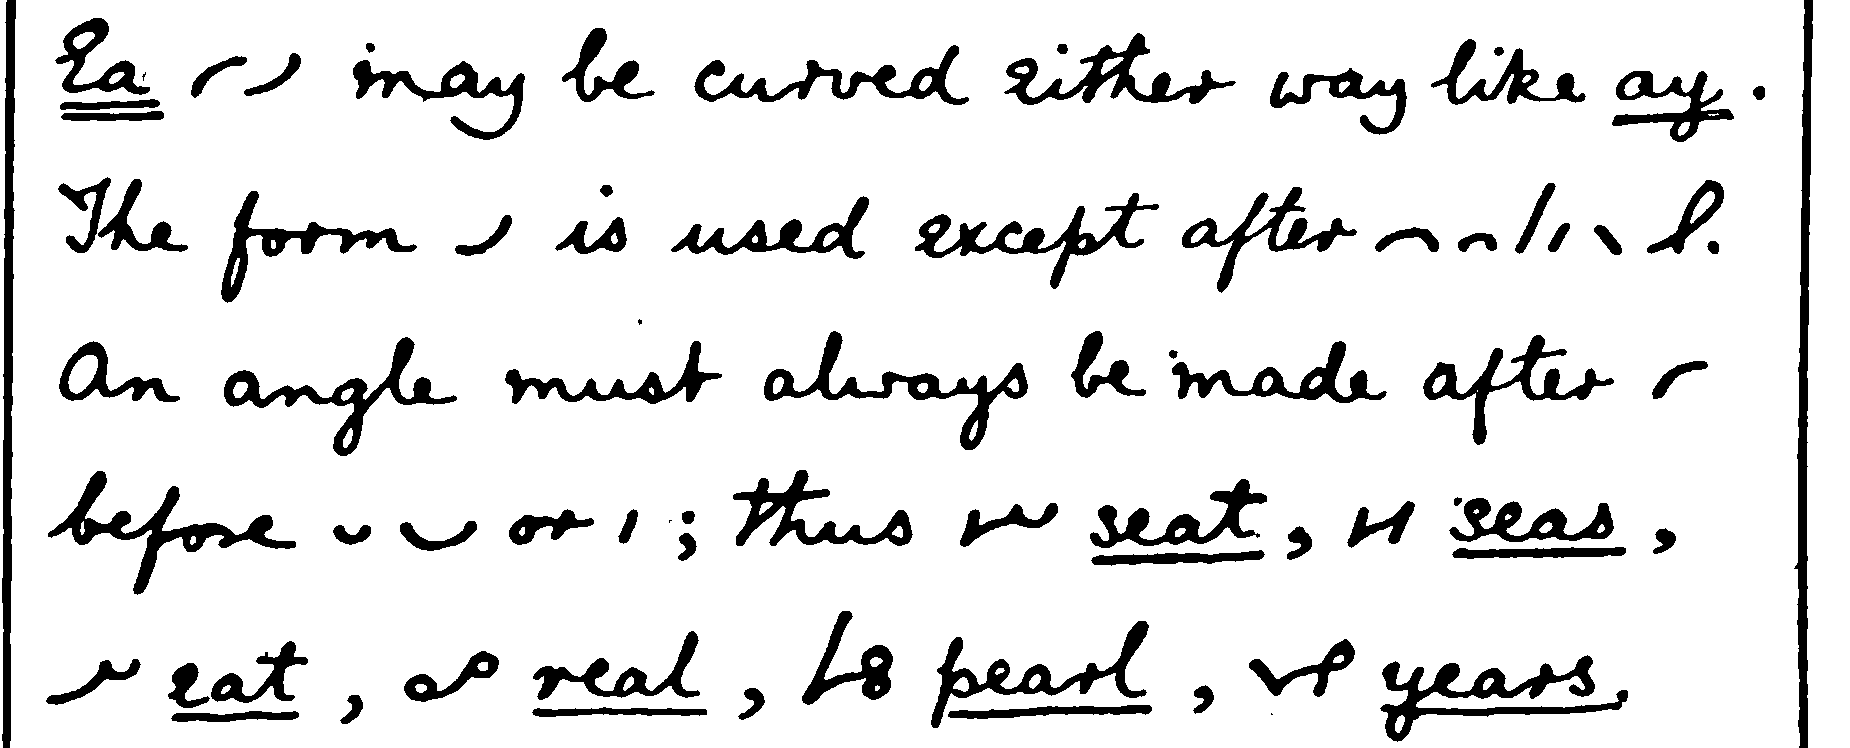 Ea may be curved either way like ay.
The form is used except after
An angle must always be made after
before or ; thus seat, seas,
eat, real, pearl, years.